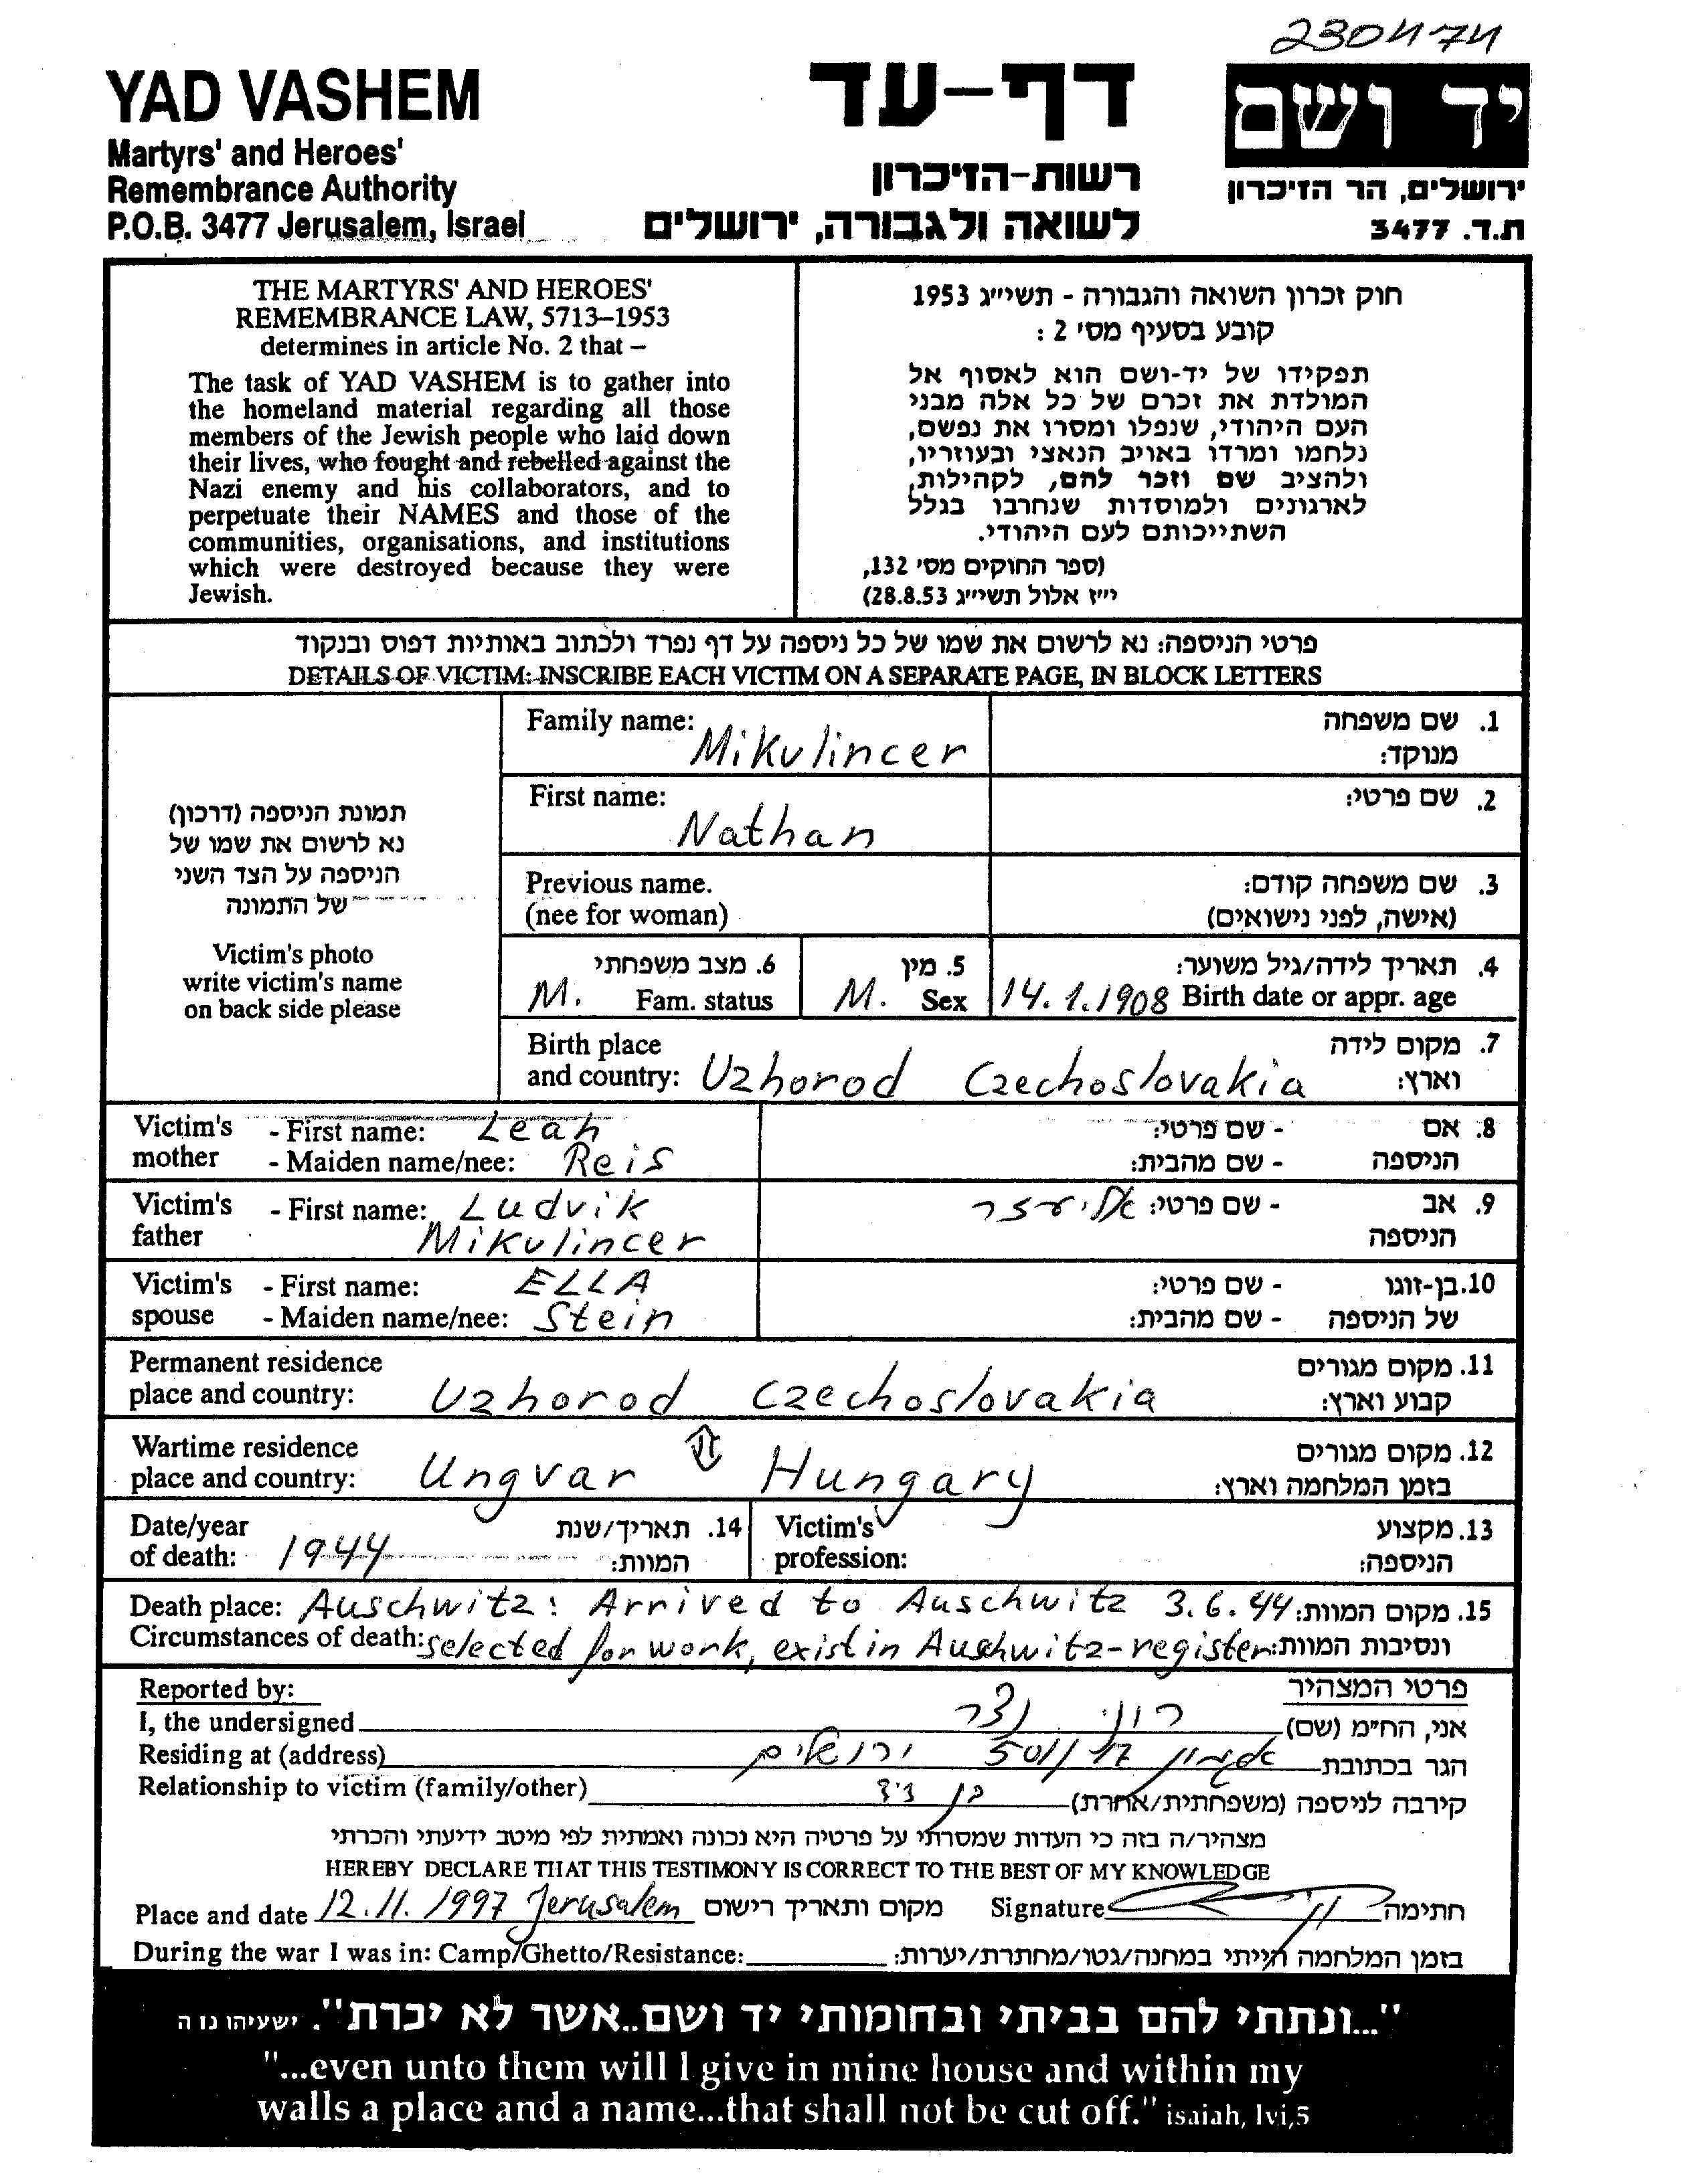 2304174
YAD VASHEM
Martyrs' and Heroes'
Remembrance Authority
P.O.B. 3477 Jerusalem, Israel
דף-עד
רשות-הזיכרון
לשואה ולגבורה, ירושלים
יד ושם
ירושלים, הר הזיכרון
ת.ד. 3477
THE MARTYRS' AND HEROES'
REMEMBRANCE LAW, 5713–1953
determines in article No. 2 that –
The task of YAD VASHEM is to gather into
the homeland material regarding all those
members of the Jewish people who laid down
their lives, who fought and rebelled against the
Nazi enemy and his collaborators, and to
perpetuate their NAMES and those of the
communities, organisations, and institutions
which were destroyed because they were
Jewish.
חוק זכרון השואה והגבורה - תשי״ג 1953
קובע בסעיף מס׳ 2 :
תפקידו של יד-ושם הוא לאסוף אל
המולדת את זכרם של כל אלה מבני
העם היהודי, שנפלו ומסרו את נפשם,
נלחמו ומרדו באויב הנאצי ובעוזריו,
ולהציב שם וזכר להם, לקהילות,
לארגונים ולמוסדות שנחרבו בגלל
השתייכותם לעם היהודי.
(ספר החוקים מס׳ 132,
י״ז אלול תשי״ג 28.8.53)
פרטי הניספה: נא לרשום את שמו של כל ניספה על דף נפרד ולכתוב באותיות דפוס ובנקוד
DETAILS OF VICTIM: INSCRIBE EACH VICTIM ON A SEPARATE PAGE, IN BLOCK LETTERS
תמונת הניספה (דרכון)
נא לרשום את שמו של
הניספה על הצד השני
של התמונה
Victim's photo
write victim's name
on back side please
Family name: Mikulincer
1. שם משפחה
מנוקד:
First name: Nathan
2. שם פרטי:
Previous name.
(nee for woman)
3. שם משפחה קודם:
(אישה, לפני נישואים)
6. מצב משפחתי
M. Fam. status
5. מין
M. Sex
4. תאריך לידה/גיל משוער:
14.1.1908 Birth date or appr. age
Birth place
and country: Uzhorod Czechoslovakia
7. מקום לידה
וארץ:
Victim's - First name: Leah
mother - Maiden name/nee: Reis
8. אם - שם פרטי:
הניספה - שם מהבית:
Victim's - First name: Ludvik
father Mikulincer
9. אב - שם פרטי: אליעזר
הניספה
Victim's - First name: ELLA
spouse - Maiden name/nee: Stein
10. בן-זוגו - שם פרטי:
של הניספה - שם מהבית:
Permanent residence
place and country: Uzhorod Czechoslovakia
11. מקום מגורים
קבוע וארץ:
Wartime residence
place and country: Ungvar Hungary
12. מקום מגורים
בזמן המלחמה וארץ:
Date/year
of death: 1944
14. תאריך/שנת
המוות:
Victim's
profession:
13. מקצוע
הניספה:
Death place: Auschwitz: Arrived to Auschwitz 3.6.44 15. מקום המוות:
Circumstances of death: selected for work, exist in Aushwitz-register ונסיבות המוות:
Reported by: פרטי המצהיר
I, the undersigned רוני נצר אני, הח״מ (שם)
Residing at (address) 17/501 ירושלים הגר בכתובת
Relationship to victim (family/other) בן קירבה לניספה (משפחתית/אחרת)
מצהיר/ה בזה כי העדות שמסרתי על פרטיה היא נכונה ואמתית לפי מיטב ידיעתי והכרתי
HEREBY DECLARE THAT THIS TESTIMONY IS CORRECT TO THE BEST OF MY KNOWLEDGE
Place and date 12.11.1997 Jerusalem מקום ותאריך רישום Signature חתימה
During the war I was in: Camp/Ghetto/Resistance: בזמן המלחמה הייתי במחנה/גטו/מחתרת/יערות:
"...ונתתי להם בביתי ובחומותי יד ושם..אשר לא יכרת". ישעיהו נו ה
"...even unto them will I give in mine house and within my
walls a place and a name...that shall not be cut off." isaiah, lvi,5